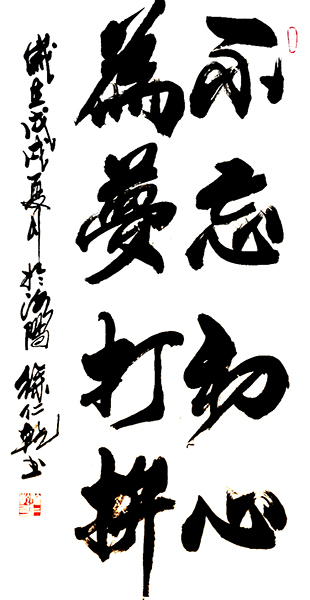 不忘初心
為夢打拼
歲在戊戌夏月於洛陽徐仁乾書